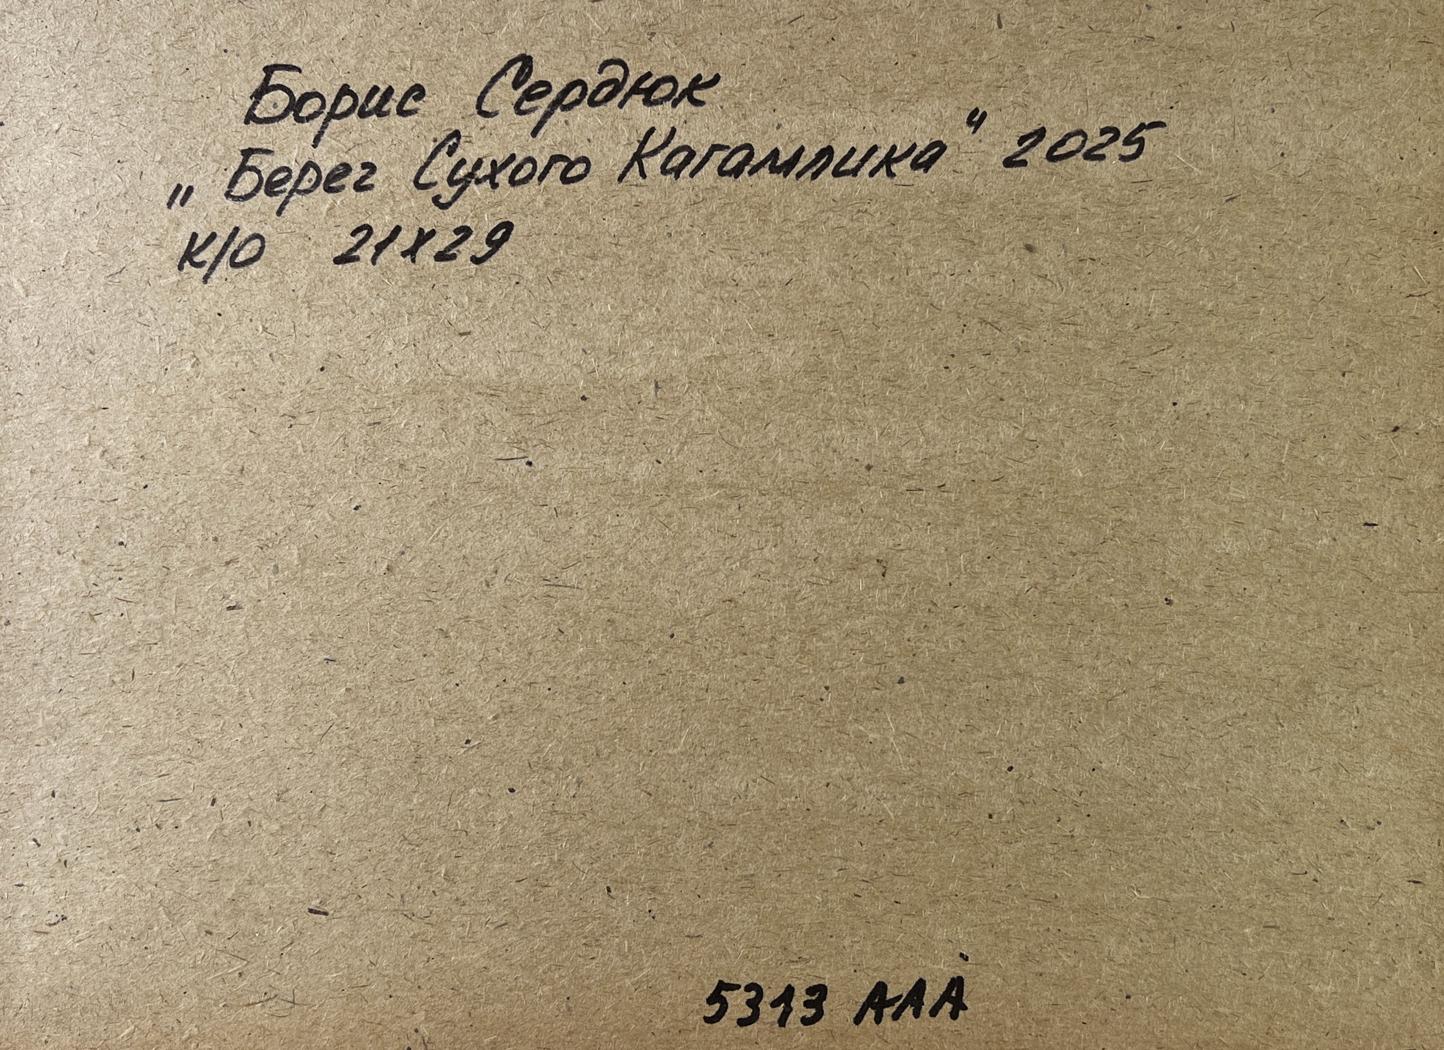 Борис Сердюк
„Берег Сухого Кагамлика“ 2025
к/о 21х29
5313 ААА